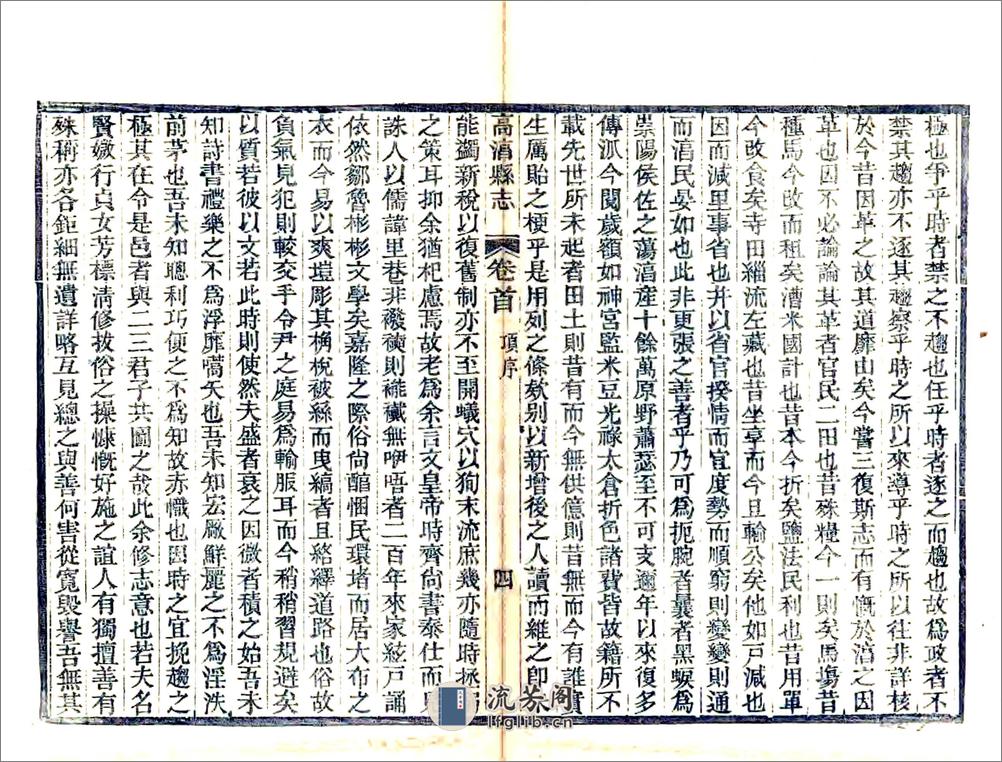 極也爭乎時者禁之不趨也任乎時者逐之而趨也故為政者不
禁其趨亦不逐其趨察乎時之所以來導乎時之所以往非詳核
於今昔因革之故其道靡由矣今嘗三復斯志而有慨於滈之因
革也因不必論論其革者官民二田也昔殊糧今一則矣馬場昔
種馬今改而租矣漕米國計也昔本今折矣鹽法民利也昔用單
今改食矣寺田緇流左藏也昔坐享而今且輸公矣他如戸減也
因而減里事省也并以省官揆情而宜度勢而順窮則變變則通
而滈民晏如也此非更張之善者乎乃可為扼腕者曩者黑蜧為
祟陽侯佐之蕩滈産十餘萬原野蕭瑟至不可支邇年以來復多
傳泒今閱歲額如神宮監米豆光祿太倉折色諸費皆故籍所不
載先世所未起者田土則昔有而今無供億則昔無而今有誰實
生厲貽之梗乎是用列之條欵别以新增後之人讀而維之即
高淯縣志
卷首
頂序
四
能蠲新稅以復舊制亦不至開蟻穴以狥末流庶幾亦隨時拯
之策耳抑余猶杞慮焉故老為余言文皇帝時齊尚書泰仕而
誅人以儒諱里巷非襏襫則襤褸無咿唔者二百年來家絃戸誦
依然鄒魯彬彬文學矣嘉隆之際俗尚醕悃民環堵而居大布之
衣而今易以爽塏彫其桷梲被絲而曳縞者且絡繹道路也俗故
負氣見犯則較交乎令尹之庭易為輸服耳而今稍稍習規避矣
以質若彼以文若此時則使然夫盛者衰之因微者積之始吾未
知詩書禮樂之不為浮靡嚆矢也吾未知宏厰鮮麗之不為淫泆
前茅也吾未知聰利巧便之不為知故赤幟也因時之宜挽趨之
極其在令是邑者與二三君子共圖之哉此余修志意也若夫名
賢媺行貞女芳標清修拔俗之操慷慨好施之誼人有獨擅善有
殊稱亦各鉅細無遺詳略互見總之與善何害從寛毁譽吾無其
流芬阁
lfglib.cn